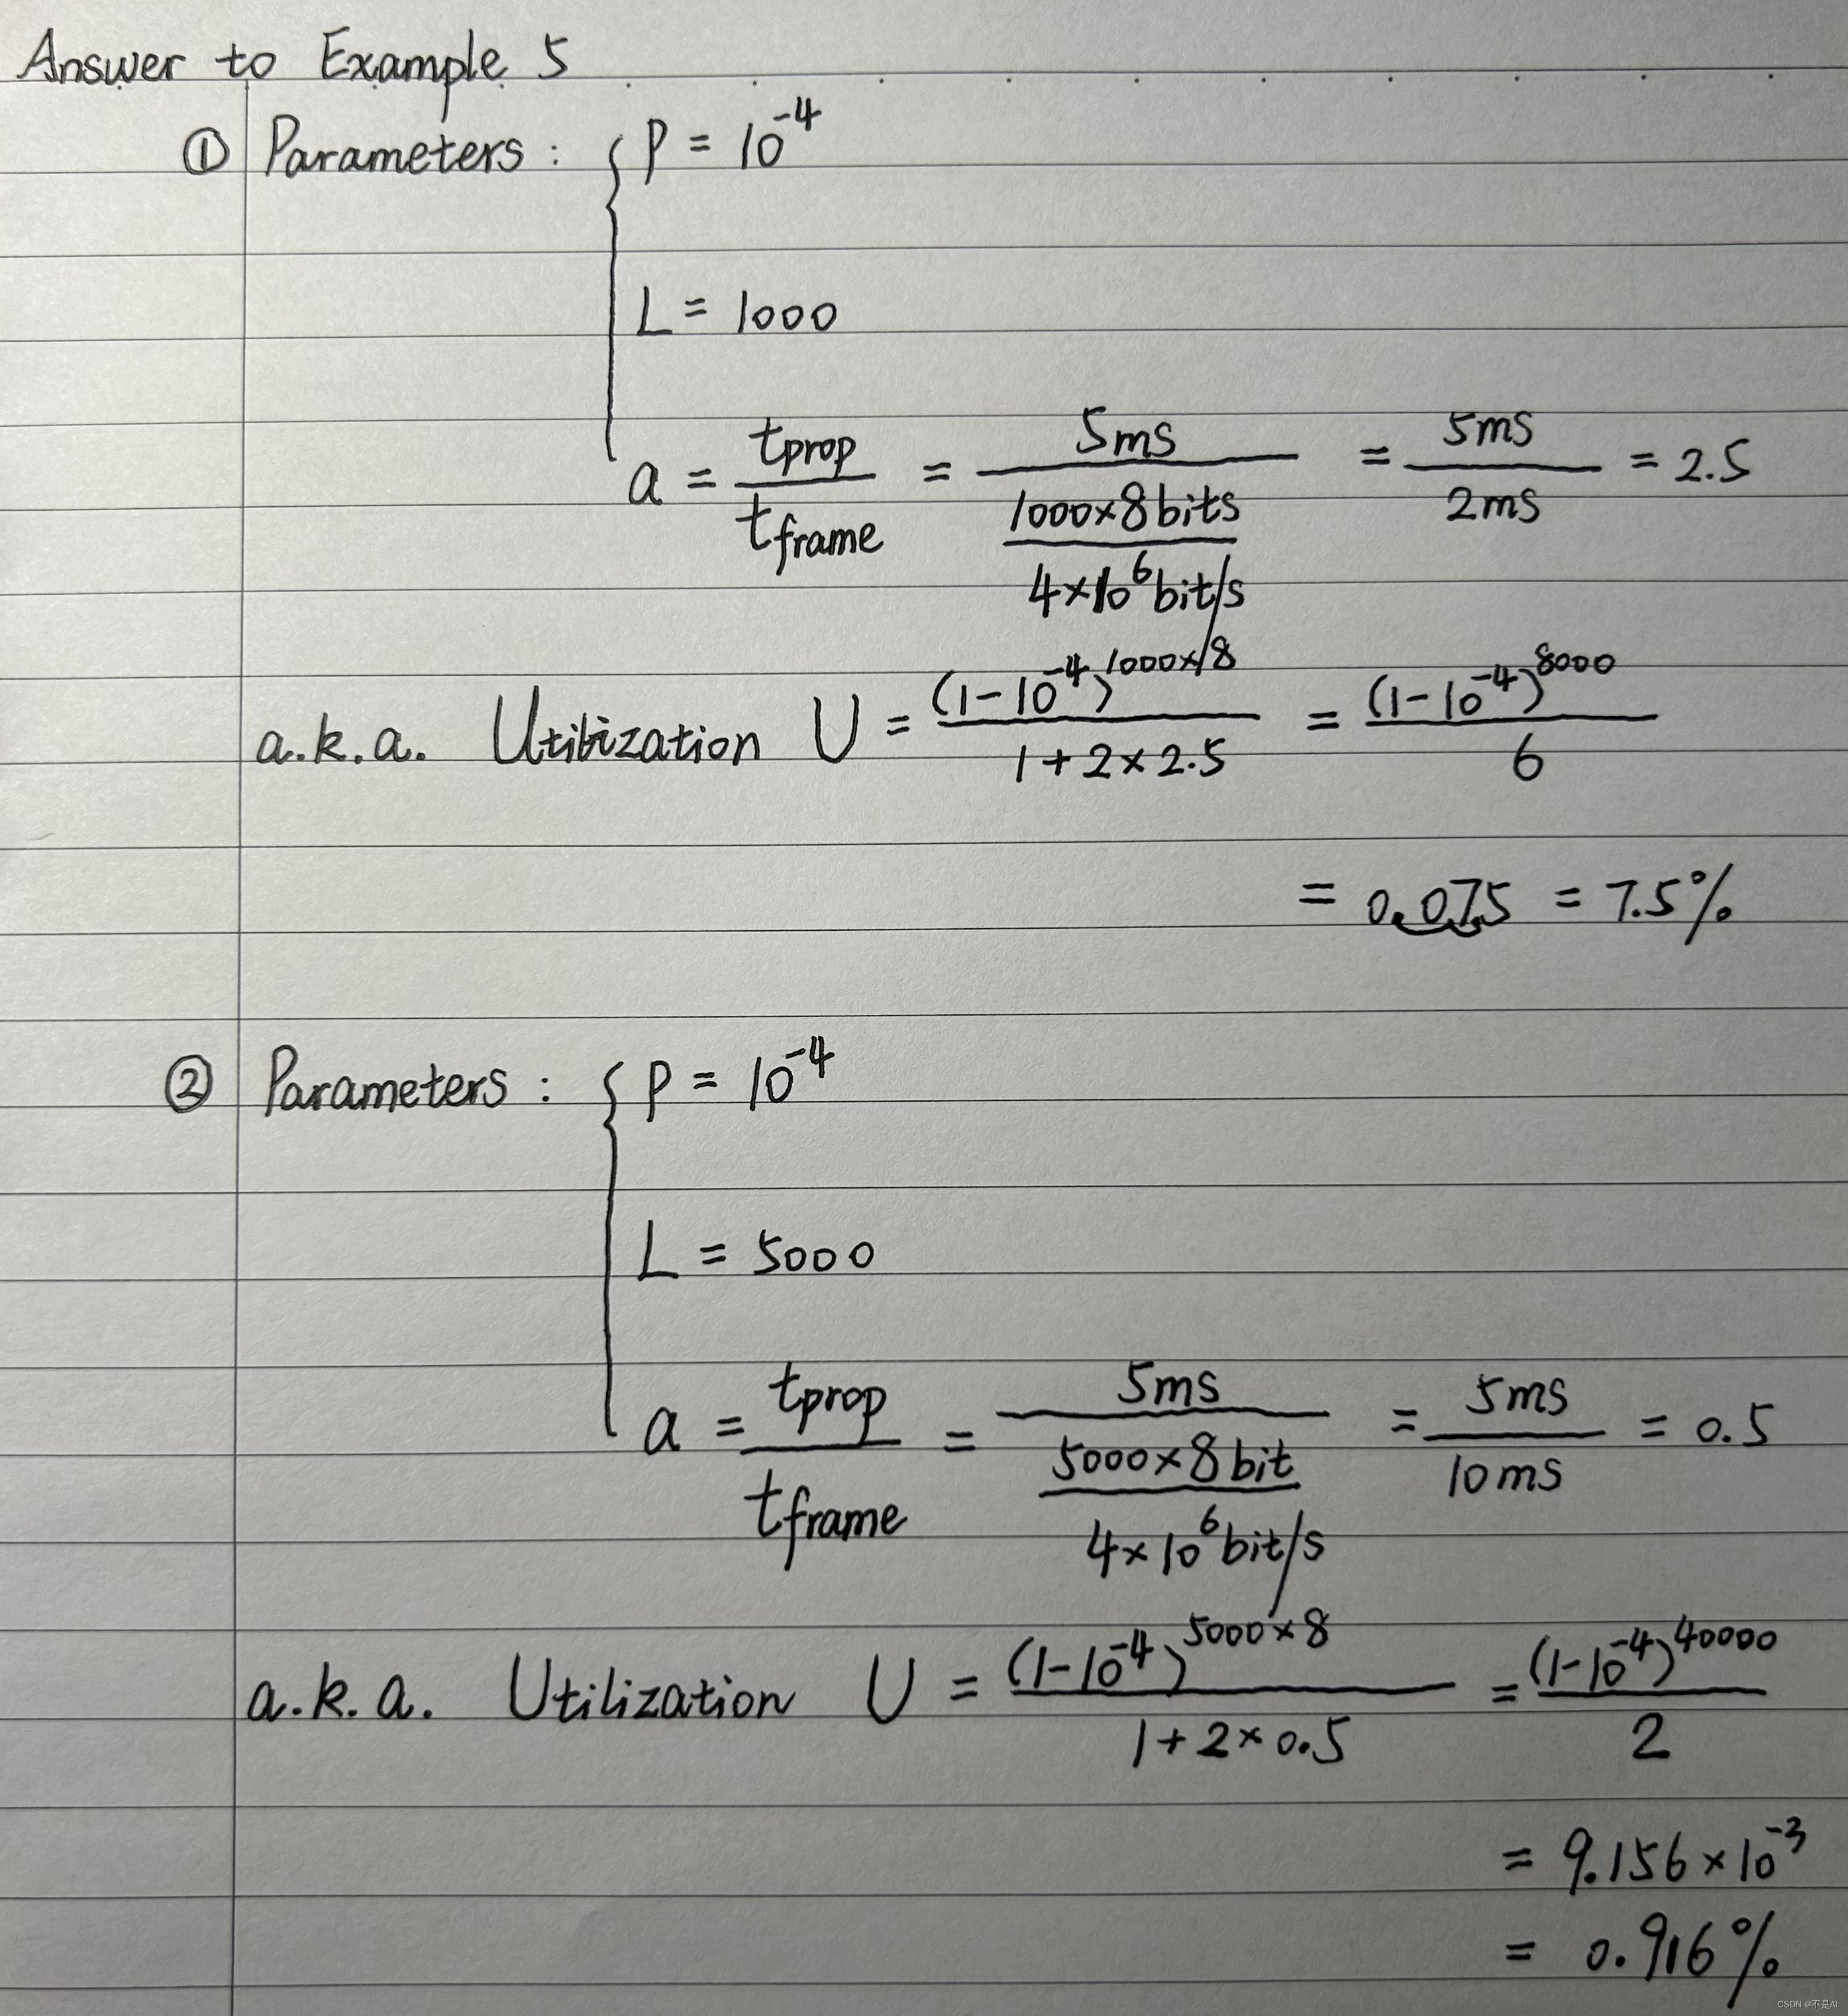 Answer to Example 5
① Parameters : { P = 10^-4
L = 1000
a = tprop / tframe = 5ms / (1000×8bits / 4×10^6bit/s) = 5ms / 2ms = 2.5
a.k.a. Utilization U = (1-10^-4)^1000×8 / 1+2×2.5 = (1-10^-4)^8000 / 6
= 0.075 = 7.5%
② Parameters : { P = 10^-4
L = 5000
a = tprop / tframe = 5ms / (5000×8bit / 4×10^6bit/s) = 5ms / 10ms = 0.5
a.k.a. Utilization U = (1-10^-4)^5000×8 / 1+2×0.5 = (1-10^-4)^40000 / 2
= 9.156×10^-3
= 0.916%
CSDN @不是AI